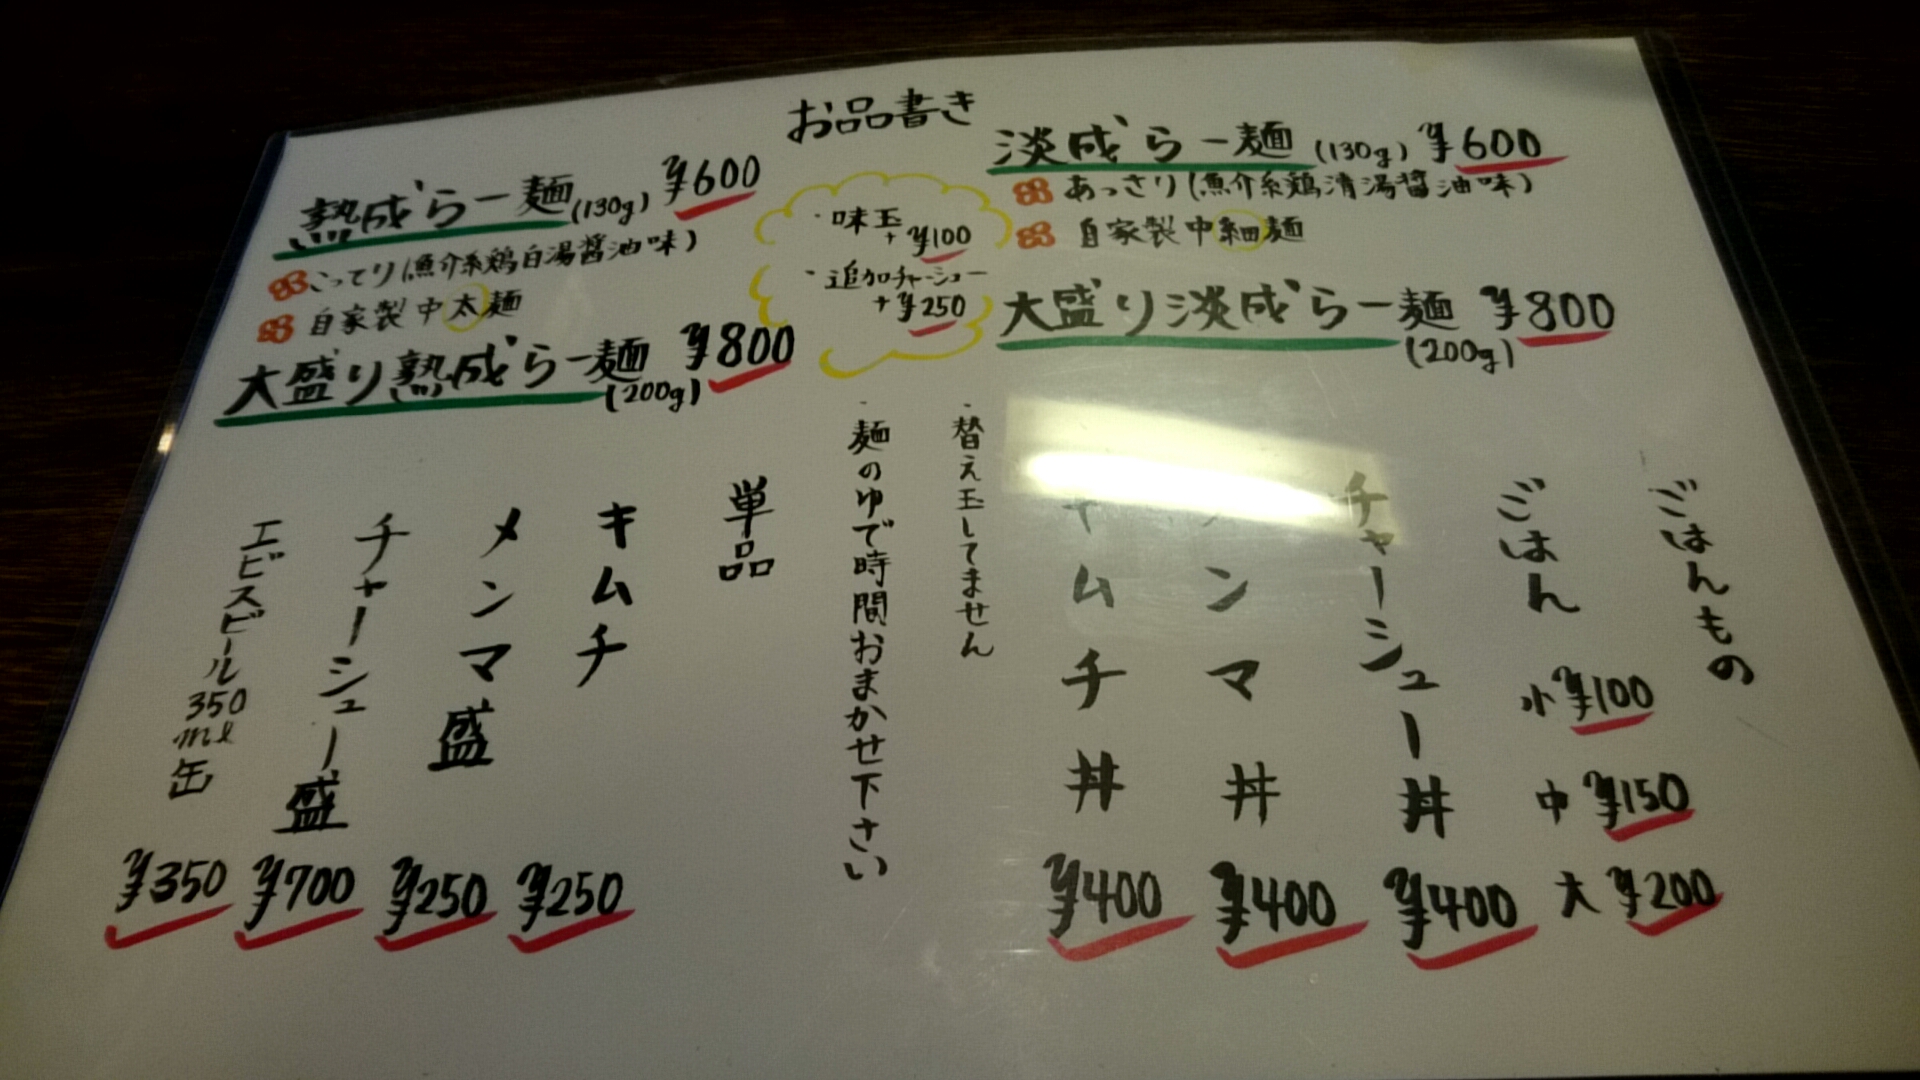 お品書き
熟成らー麺(130g) ¥600
こってり(魚介系鶏白湯醤油味)
自家製中太麺
大盛り熟成らー麺(200g) ¥800
・味玉
+¥100
・追加チャーシュー
+¥250
淡成らー麺(130g) ¥600
あっさり(魚介系鶏清湯醤油味)
自家製中細麺
大盛り淡成らー麺 ¥800
(200g)
ごはんもの
ごはん
小¥100
中¥150
大¥200
チャーシュー丼 ¥400
メンマ丼 ¥400
キムチ丼 ¥400
・替え玉してません
・麺のゆで時間おまかせ下さい
単品
キムチ ¥250
メンマ盛 ¥250
チャーシュー盛 ¥700
エビスビール350ml缶 ¥350